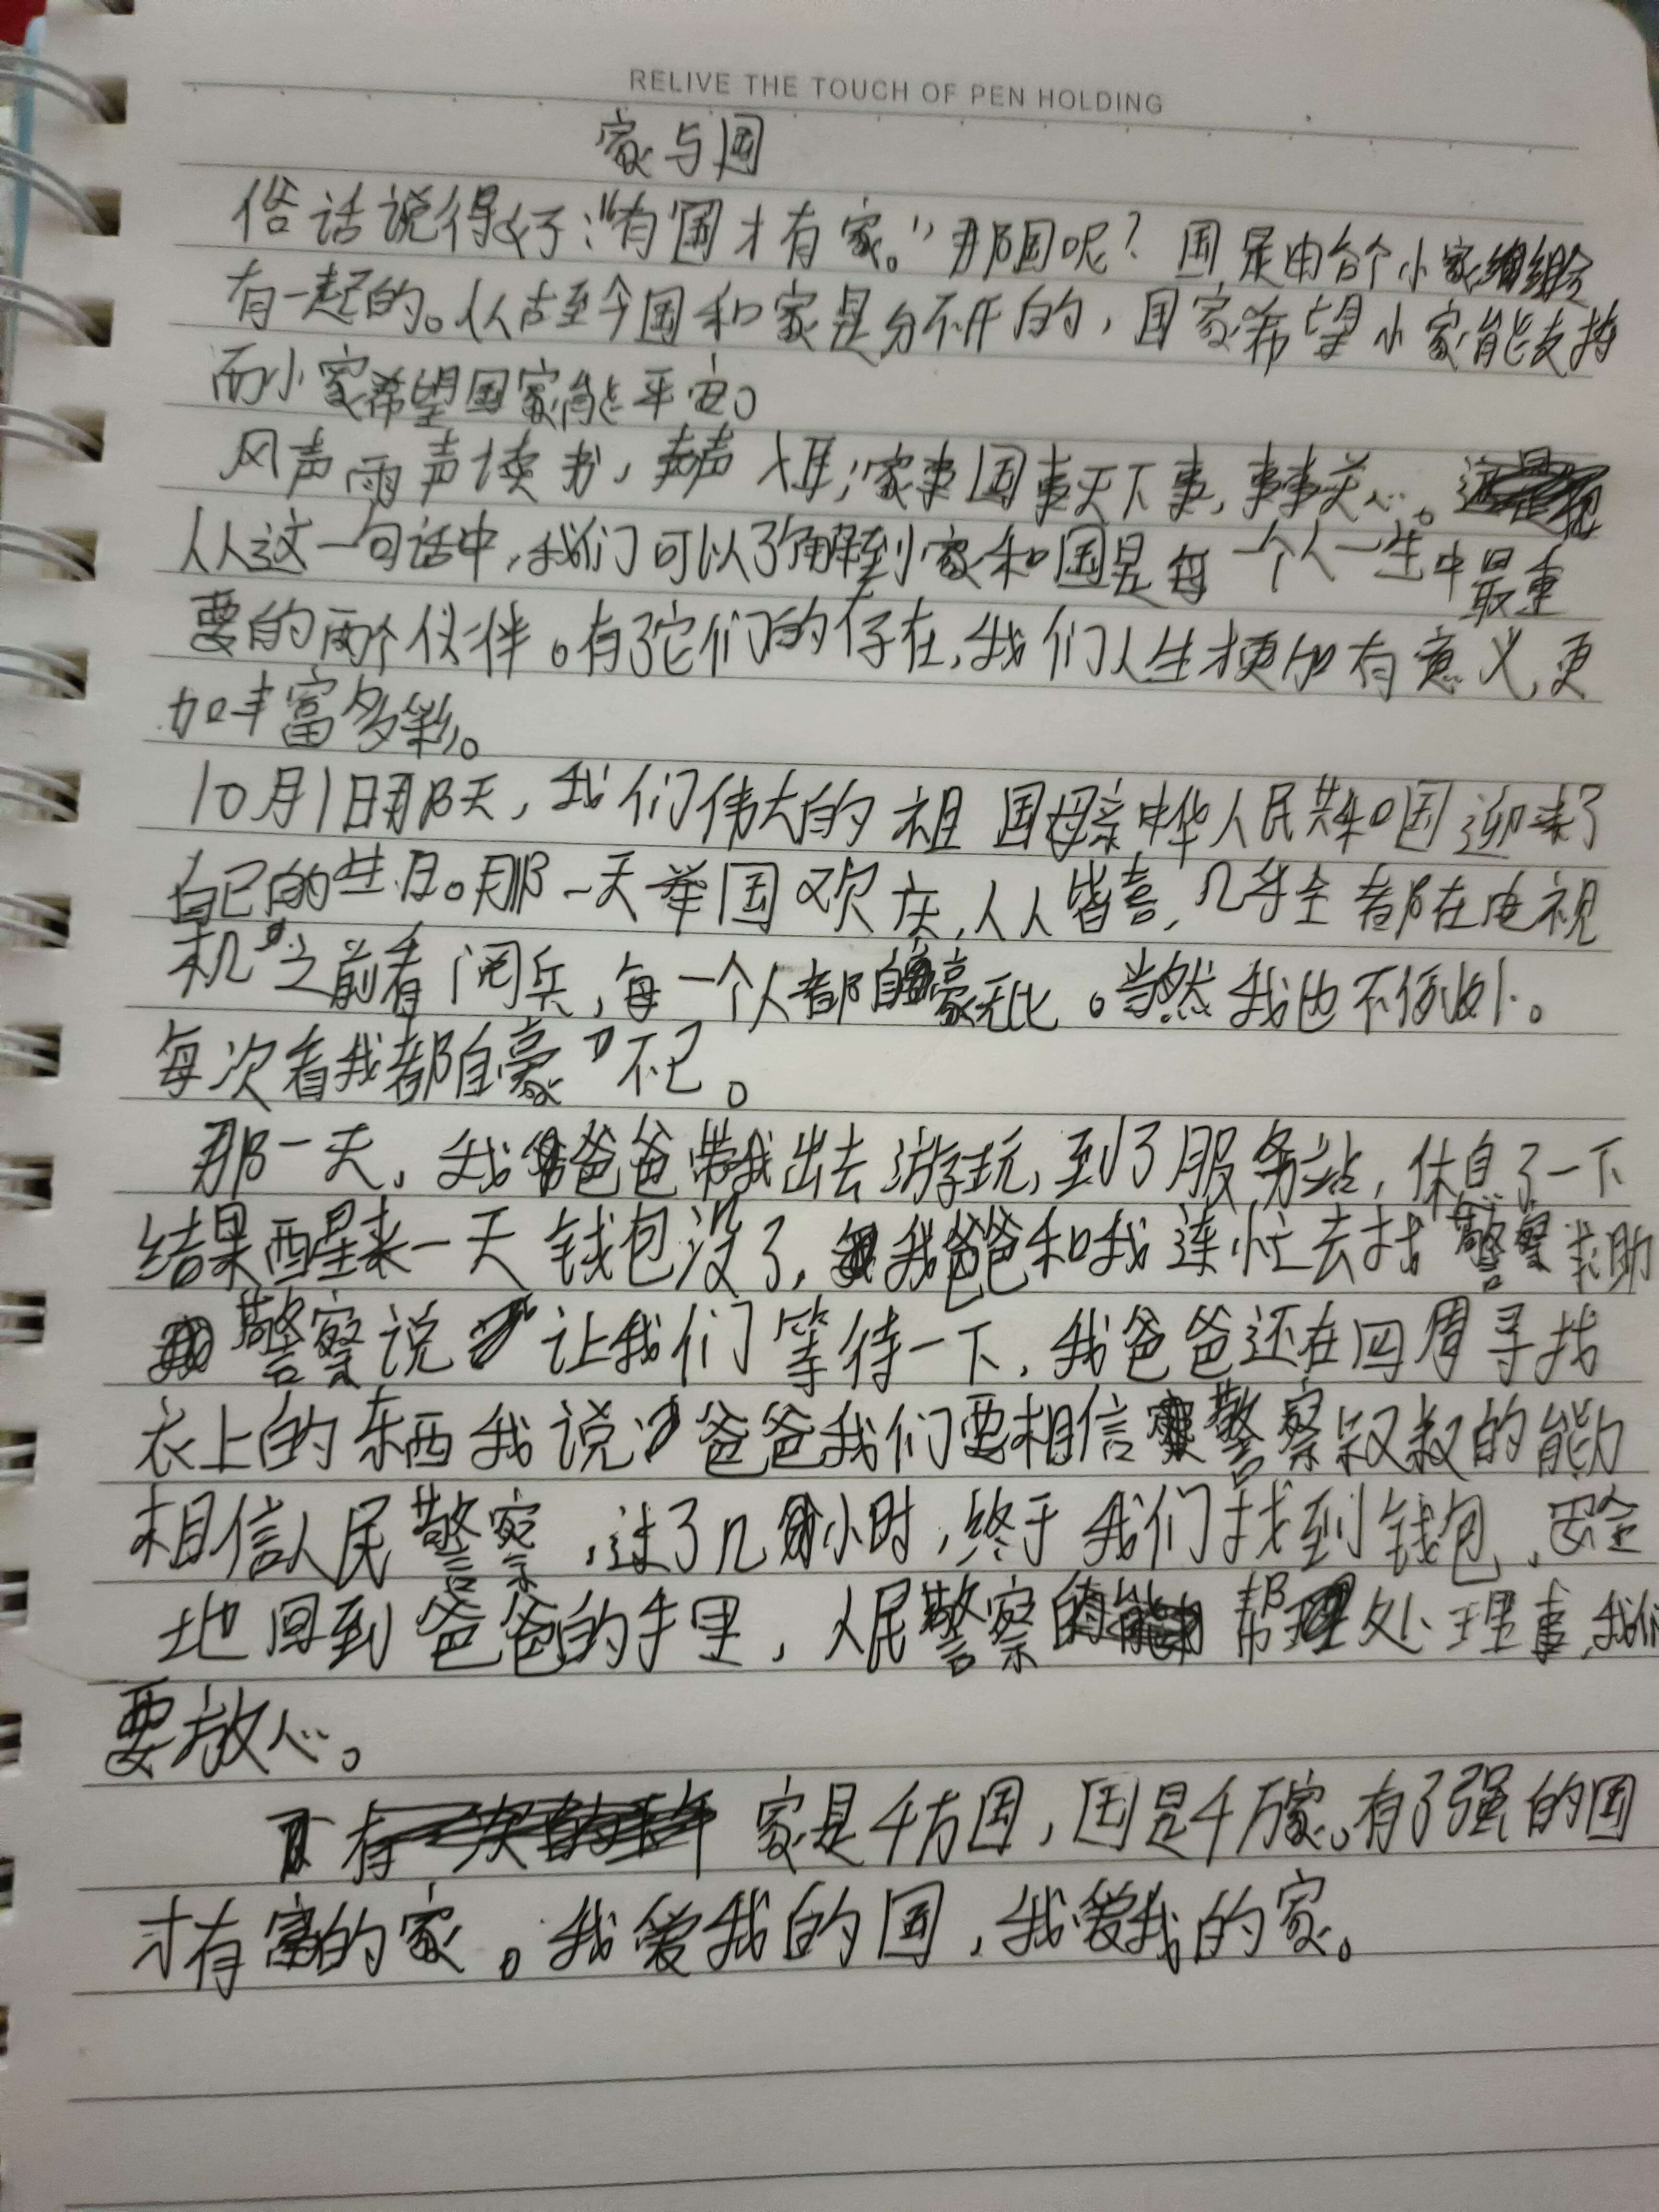 RELIVE THE TOUCH OF PEN HOLDING
家与国
俗话说得好:“有国才有家。”那国呢?国是由各个小家组合
有一起的。从古至今国和家是分不开的,国家希望小家能支持
而小家希望国家能平安。
风声雨声读书,声声入耳;家事国事天下事,事事关心。
从这一句话中,我们可以了解到小家和国是每一个人一生中最重
要的两个伙伴。有了它们的存在,我们人生才更加有意义,更
加丰富多彩。
10月1日那天,我们伟大的祖国母亲中华人民共和国迎来了
自己的生日。那一天举国欢庆,人人皆喜,几乎全都在电视
机之前看阅兵,每一个人都自豪无比。当然我也不例外。
每次看我都自豪不已。
那一天,我爸爸带我出去游玩,到了服务站,休息了一下
结果醒来一天钱包没了,我爸爸和我连忙去找警察求助
警察说让我们等待一下,我爸爸还在四周寻找
衣上的东西我说爸爸我们要相信警察叔叔的能力
相信人民警察,过了几小时,终于我们找到钱包,安全
地回到爸爸的手里,人民警察帮处理事,我们
要放心。
家是千方国,国是千万家。有了强的国
才有富的家。我爱我的国,我爱我的家。